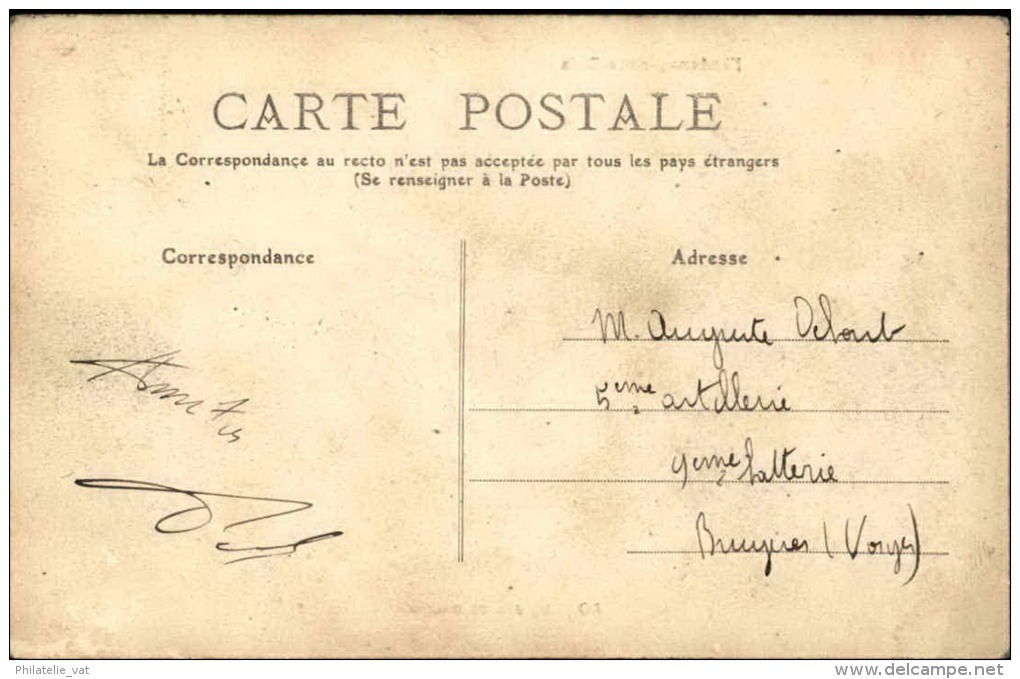 CARTE POSTALE
La Correspondance au recto n'est pas acceptée par tous les pays étrangers
(Se renseigner à la Poste)
Correspondance
Adresse
M. Auguste
5eme artillerie
9eme batterie
Bruyères (Vosges)
Philatelie_vat
www.delcampe.net